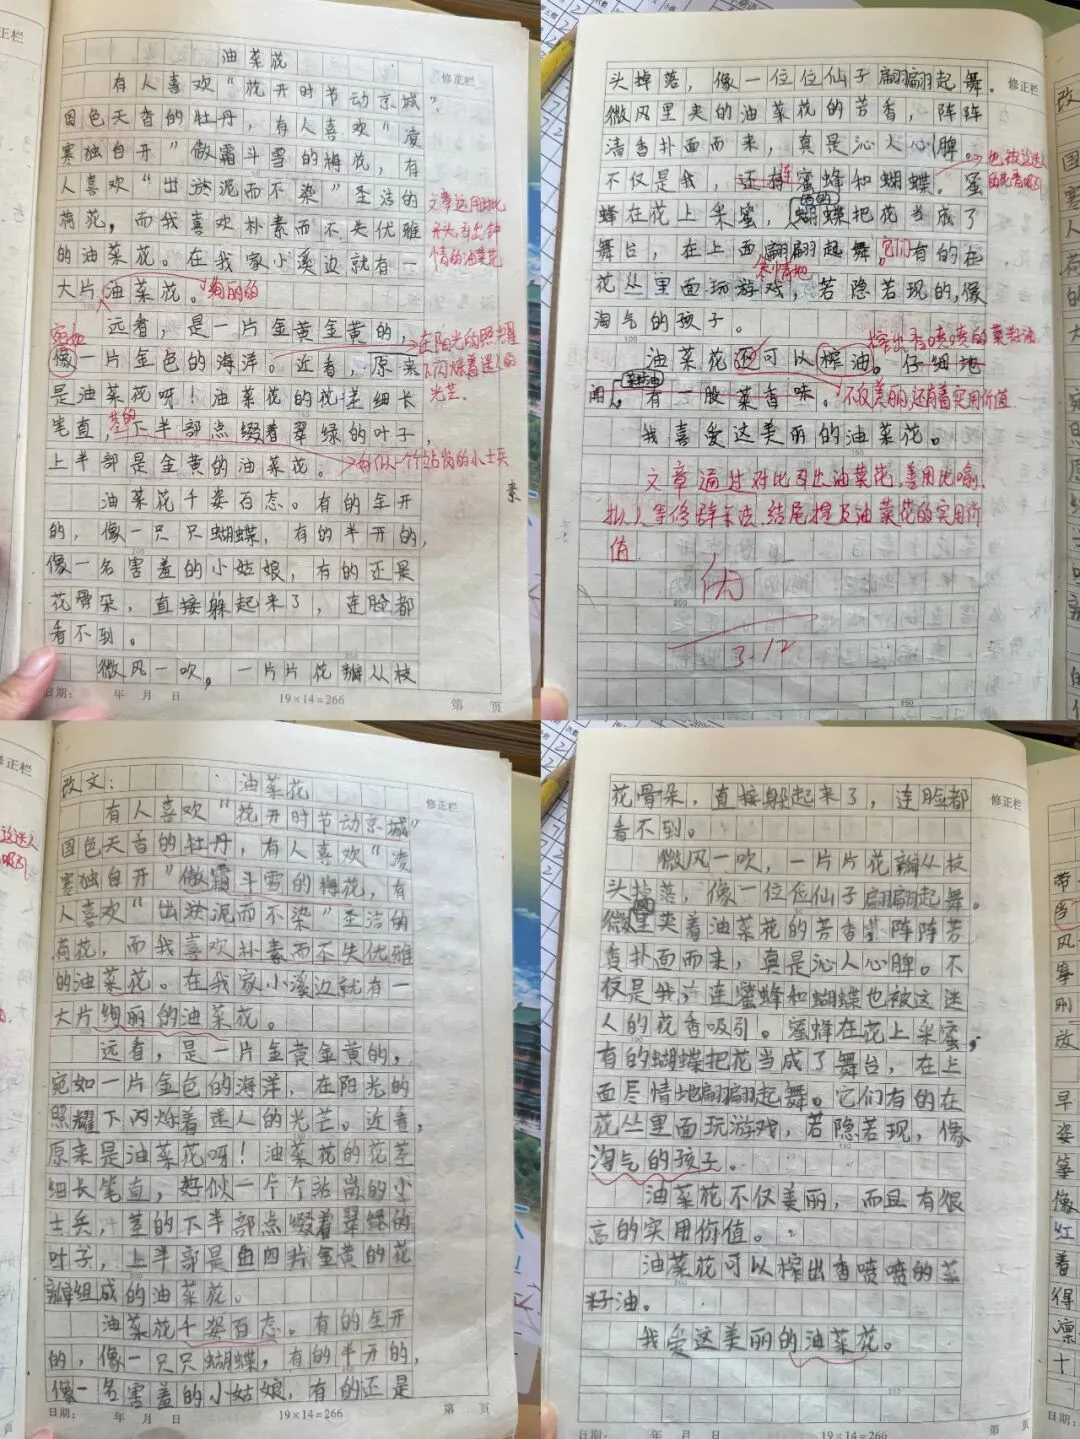 修正栏
油菜花
有人喜欢“花开时节动京城”
国色天香的牡丹，有人喜欢“凌
寒独自开”傲霜斗雪的梅花，有
人喜欢“出淤泥而不染”圣洁的
荷花，而我喜欢朴素而不失优雅
的油菜花。在我家小溪边就有一
大片油菜花。绚丽的
文章运用对比
开头引出钟
情的油菜花
远看，是一片金黄金黄的，
宛如
像一片金色的海洋。近看，原来
在阳光的照耀
下闪烁着迷人的
光芒。
是油菜花呀！油菜花的花茎细长
笔直，茎的下半部点缀着翠绿的叶子，
上半部是金黄的油菜花。
好似一个个站岗的小士兵
油菜花千姿百态。有的全开
的，像一只只蝴蝶，有的半开的，
像一名害羞的小姑娘，有的还是
花骨朵，直接躲起来了，连脸都
看不到。
微风一吹，一片片花瓣从枝
日期： 年 月 日 19×14=266 第 页
修正栏
头掉落，像一位位仙子翩翩起舞。
微风里夹的油菜花的芳香，阵阵
清香扑面而来，真是沁人心脾。
不仅是我，还持连蜜蜂和蝴蝶。蜜
也被这迷人
的花香吸引
蜂在花上采蜜，有的蝴蝶把花当成了
舞台，在上面翩翩起舞，它们有的在
尽情地
花丛里面玩游戏，若隐若现的，像
淘气的孩子。
油菜花还可以榨油。仔细地
榨出香喷喷的菜籽油
闻，有一股菜香味。
菜籽油
不仅美丽，还有着实用价值
我喜爱这美丽的油菜花。
文章通过对比引出油菜花，善用比喻、
拟人等修辞手法，结尾提及油菜花的实用价
值
优
3.12
修正栏
改文： 油菜花
有人喜欢“花开时节动京城”
国色天香的牡丹，有人喜欢“凌
寒独自开”傲霜斗雪的梅花，有
人喜欢“出淤泥而不染”圣洁的
荷花，而我喜欢朴素而不失优雅
的油菜花。在我家小溪边就有一
大片绚丽的油菜花。
远看，是一片金黄金黄的，
宛如一片金色的海洋，在阳光的
照耀下闪烁着迷人的光芒。近看，
原来是油菜花呀！油菜花的花茎
细长笔直，好似一个个站岗的小
士兵，茎的下半部点缀着翠绿的
叶子，上半部是由四片金黄的花
瓣组成的油菜花。
油菜花千姿百态。有的全开
的，像一只只蝴蝶，有的半开的，
像一名害羞的小姑娘，有的还是
日期： 年 月 日 19×14=266 第 页
修正栏
花骨朵，直接躲起来了，连脸都
看不到。
微风一吹，一片片花瓣从枝
头掉落，像一位位仙子翩翩起舞。
微风里夹着油菜花的芳香，阵阵芳
香扑面而来，真是沁人心脾。不
仅是我，连蜜蜂和蝴蝶也被这迷
人的花香吸引。蜜蜂在花上采蜜，
有的蝴蝶把花当成了舞台，在上
面尽情地翩翩起舞。它们有的在
花丛里面玩游戏，若隐若现，像
淘气的孩子。
油菜花不仅美丽，而且有很
高的实用价值。
油菜花可以榨出香喷喷的菜
籽油。
我爱这美丽的油菜花。
日期： 年 月 日 19×14=266 第 页